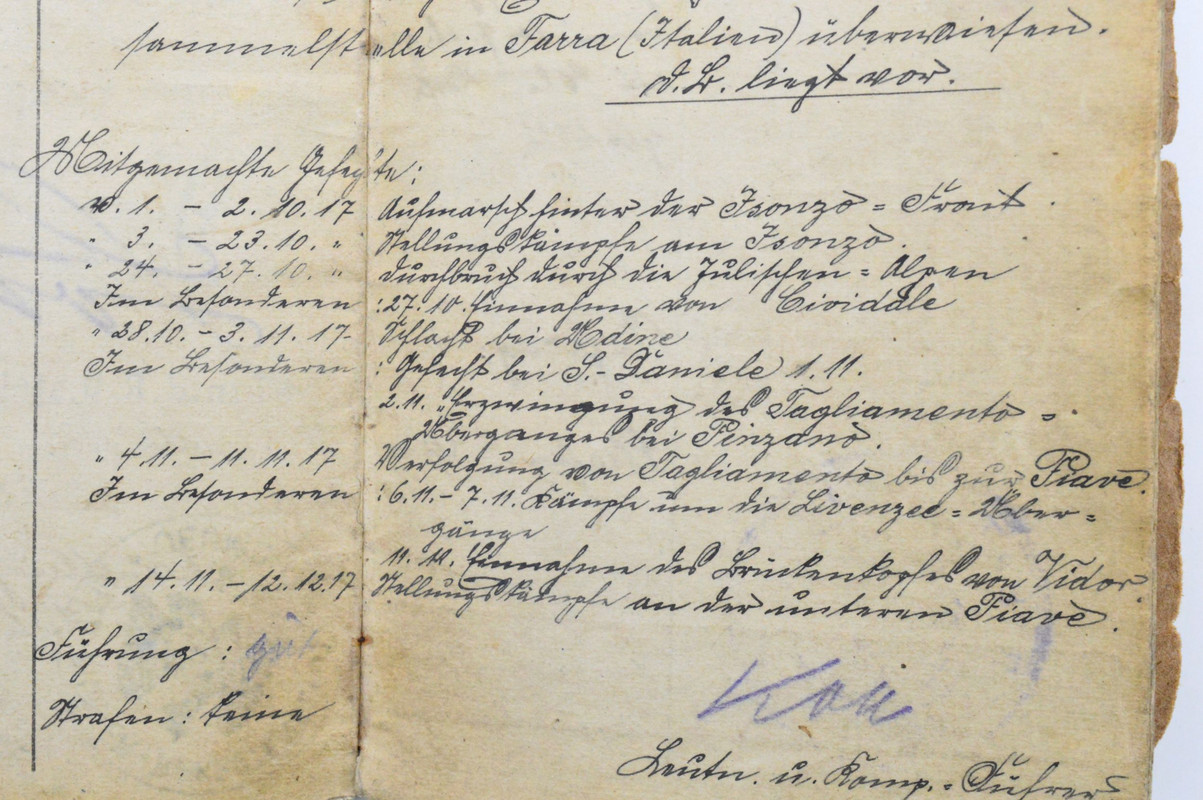 sammelstelle in Farra (Italien) überwiesen.
d.B. liegt vor.
Mitgemachte Gefechte:
v. 1. - 2. 10. 17 Aufmarsch hinter der Isonzo = Front.
" 3. - 23. 10. " Stellungskämpfe am Isonzo.
" 24. - 27. 10. " Durchbruch durch die Julischen = Alpen
Im Besonderen : 27. 10. Einnahme von Cividale
" 28.10. - 3. 11. 17. Schlacht bei Udine
Im Besonderen : Gefecht bei S.- Daniele 1. 11.
2. 11. " Erzwingung des Tagliamento =
Überganges bei Pinzano.
" 4. 11. - 11. 11. 17 Verfolgung von Tagliamento bis zur Piave.
Im Besonderen : 6. 11. - 7. 11. Kämpfe um die Livenzee = Über=
gänge
11. 11. Einnahme des Brückenkopfes von Vidor.
" 14. 11. - 12. 12. 17 Stellungskämpfe an der unteren Piave.
Führung : gut
Strafen : keine
Leutn. u. Komp. = Führer